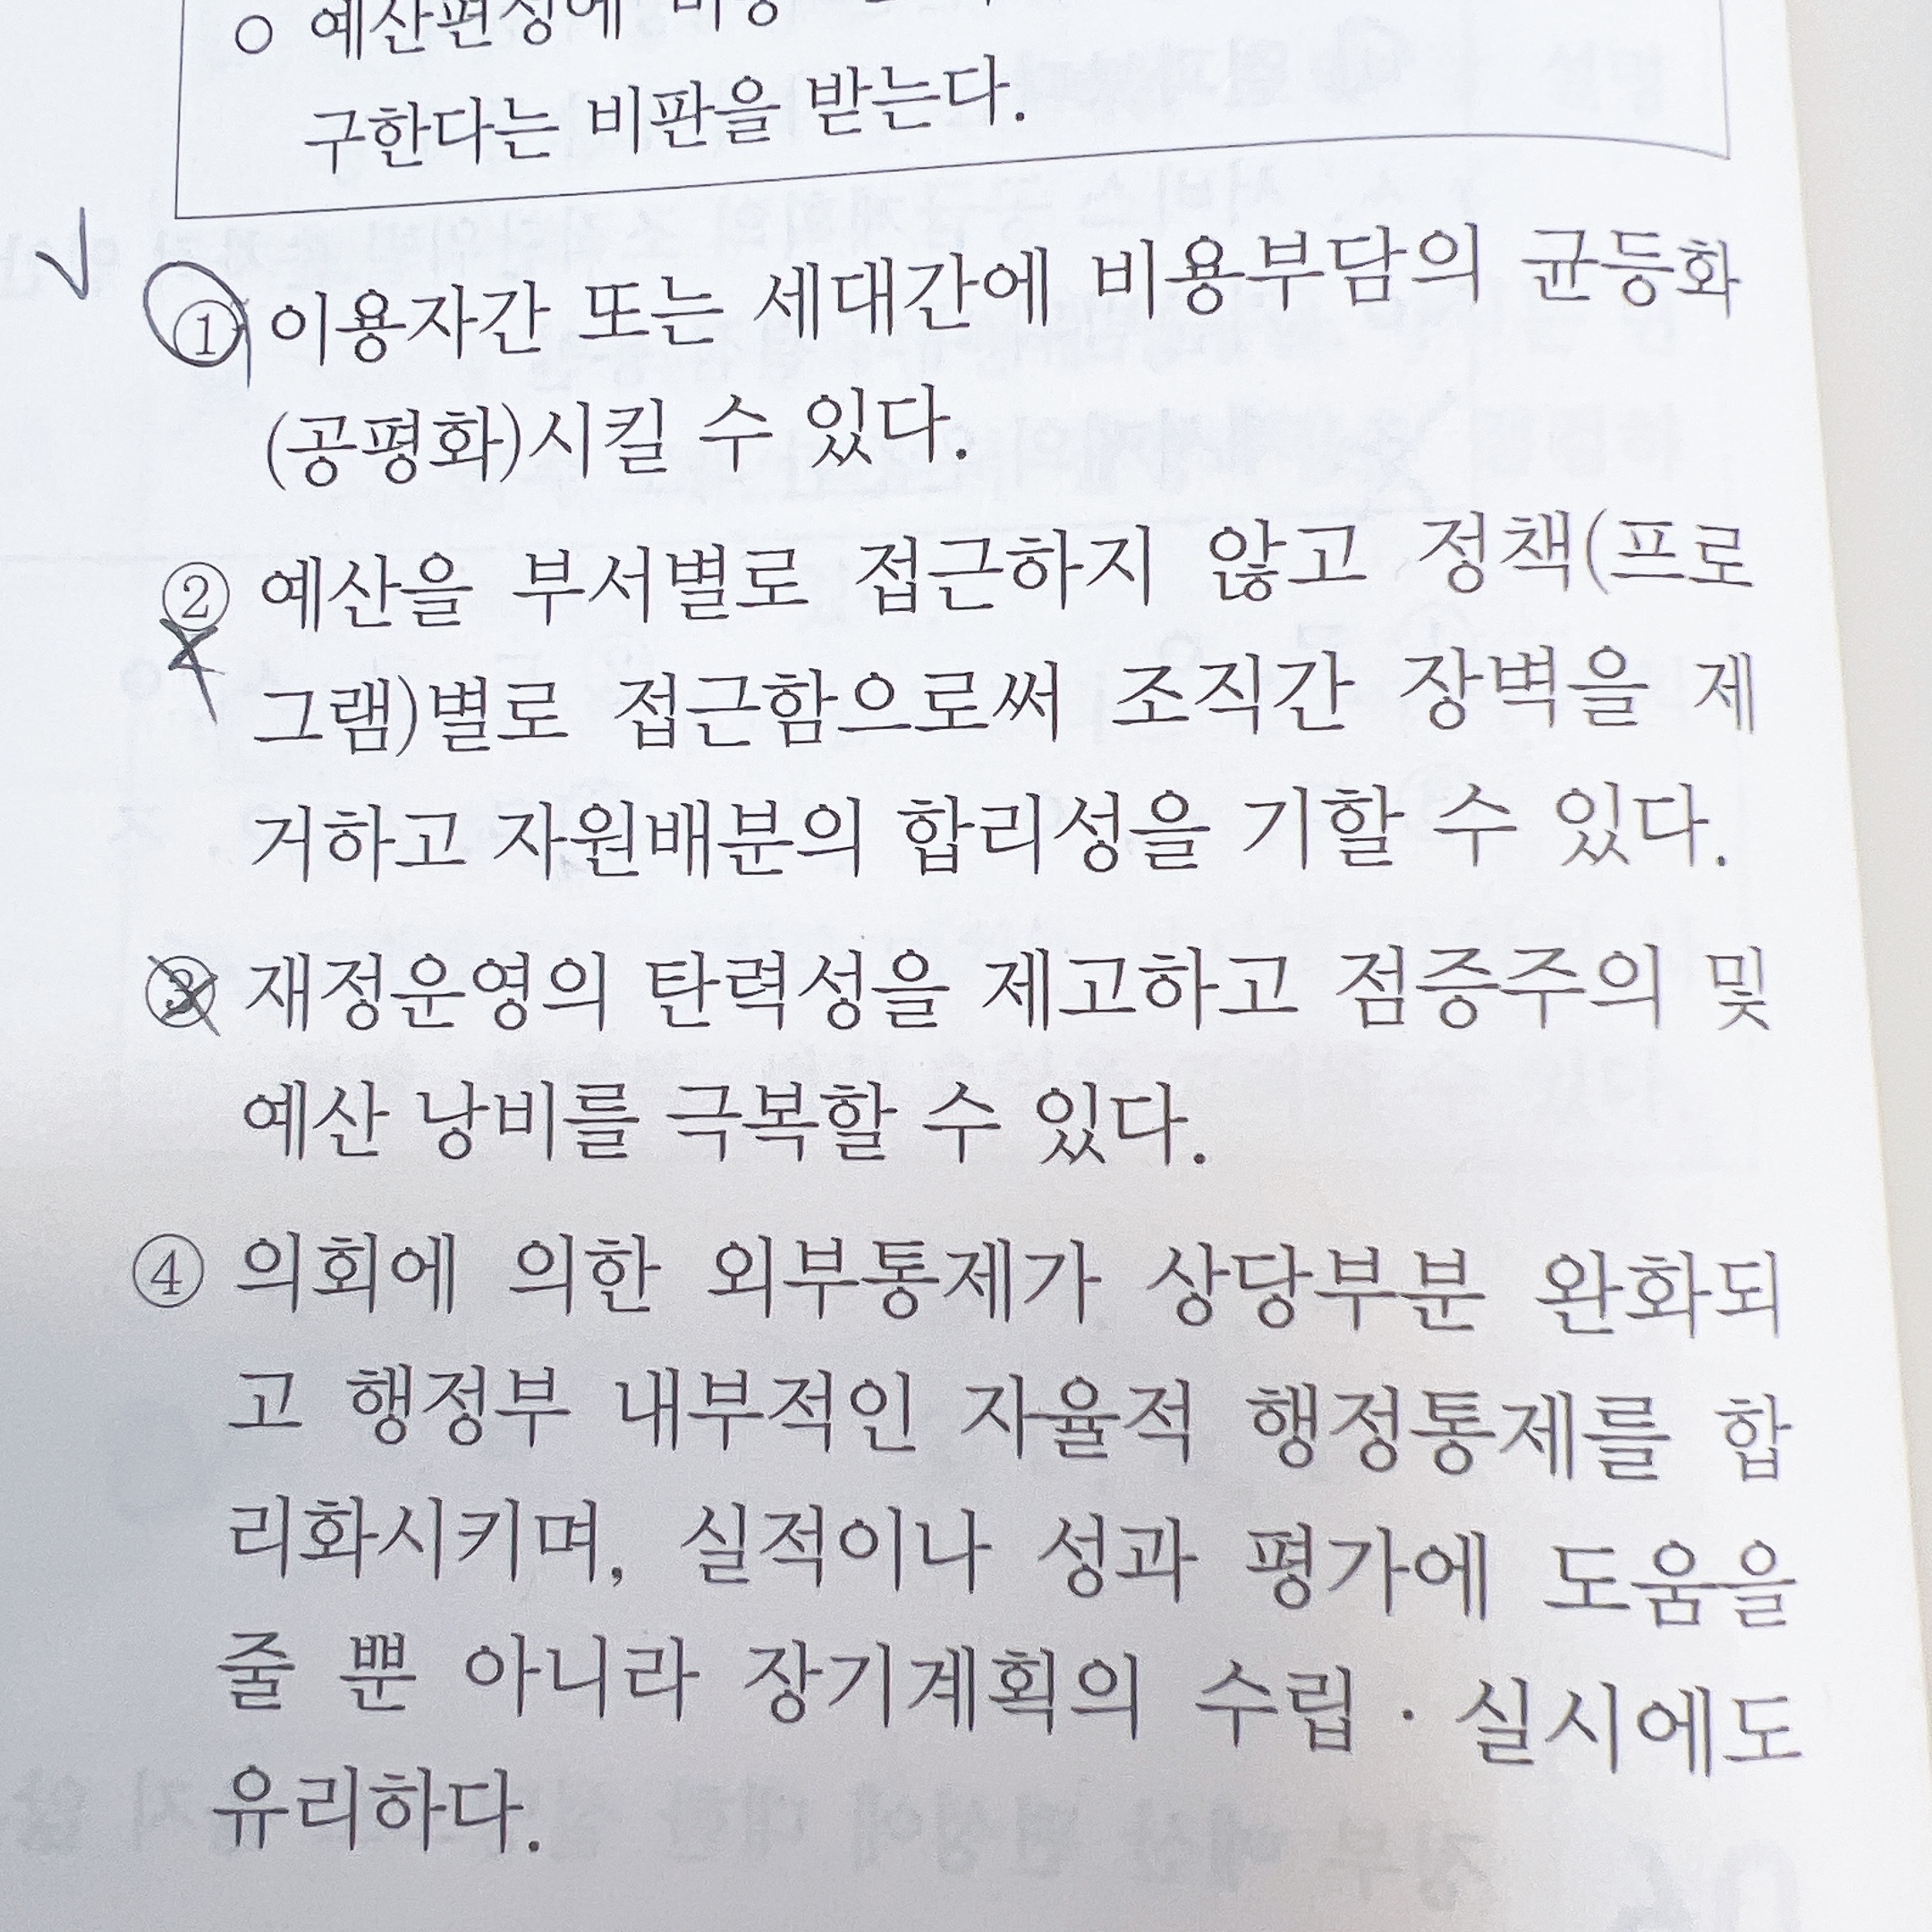 ○ 예산편성에
구한다는 비판을 받는다.
① 이용자간 또는 세대간에 비용부담의 균등화
(공평화)시킬 수 있다.
② 예산을 부서별로 접근하지 않고 정책(프로
그램)별로 접근함으로써 조직간 장벽을 제
거하고 자원배분의 합리성을 기할 수 있다.
③ 재정운영의 탄력성을 제고하고 점증주의 및
예산 낭비를 극복할 수 있다.
④ 의회에 의한 외부통제가 상당부분 완화되
고 행정부 내부적인 자율적 행정통제를 합
리화시키며, 실적이나 성과 평가에 도움을
줄 뿐 아니라 장기계획의 수립 · 실시에도
유리하다.